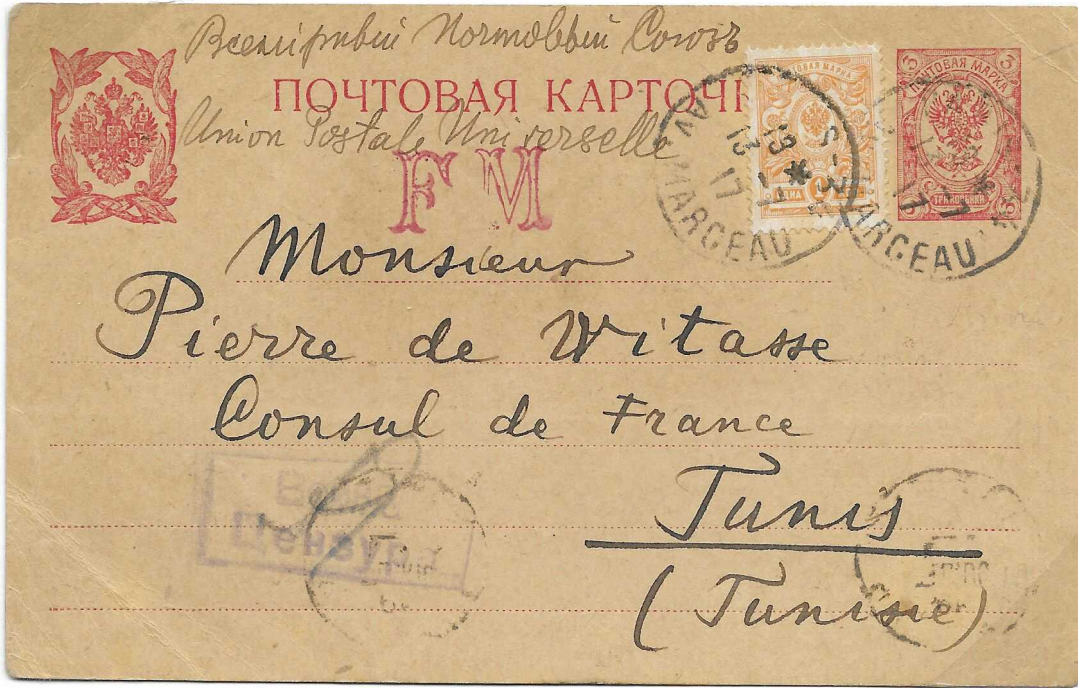 Всемірный Почтовый Союзъ
ПОЧТОВАЯ КАРТОЧ
Union Postale Universelle
F M
ПОЧТОВАЯ МАРКА
ПОЧТОВАЯ МАРКА
ТРИ КОПѢЙКИ
AV. MARCEAU
13 * 17
ARCEAU
17
Monsieur
Pierre de Witasse
Consul de France
Tunis
(Tunisie)
Цензура